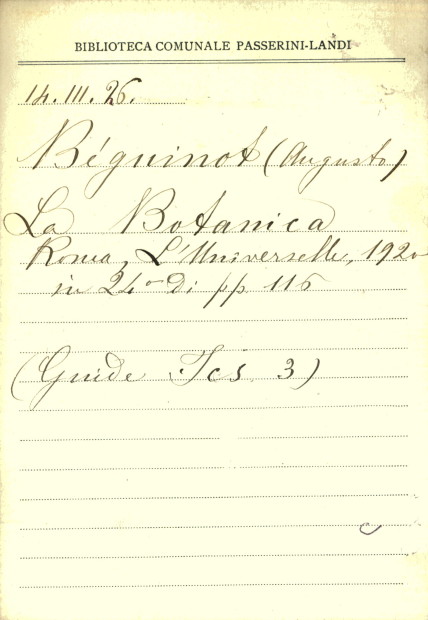 BIBLIOTECA COMUNALE PASSERINI-LANDI
14.III.26.
Béguinot (Augusto)
La Botanica
Roma, L'Universelle, 1920
in 24° di pp 116
(Guide Ics 3)